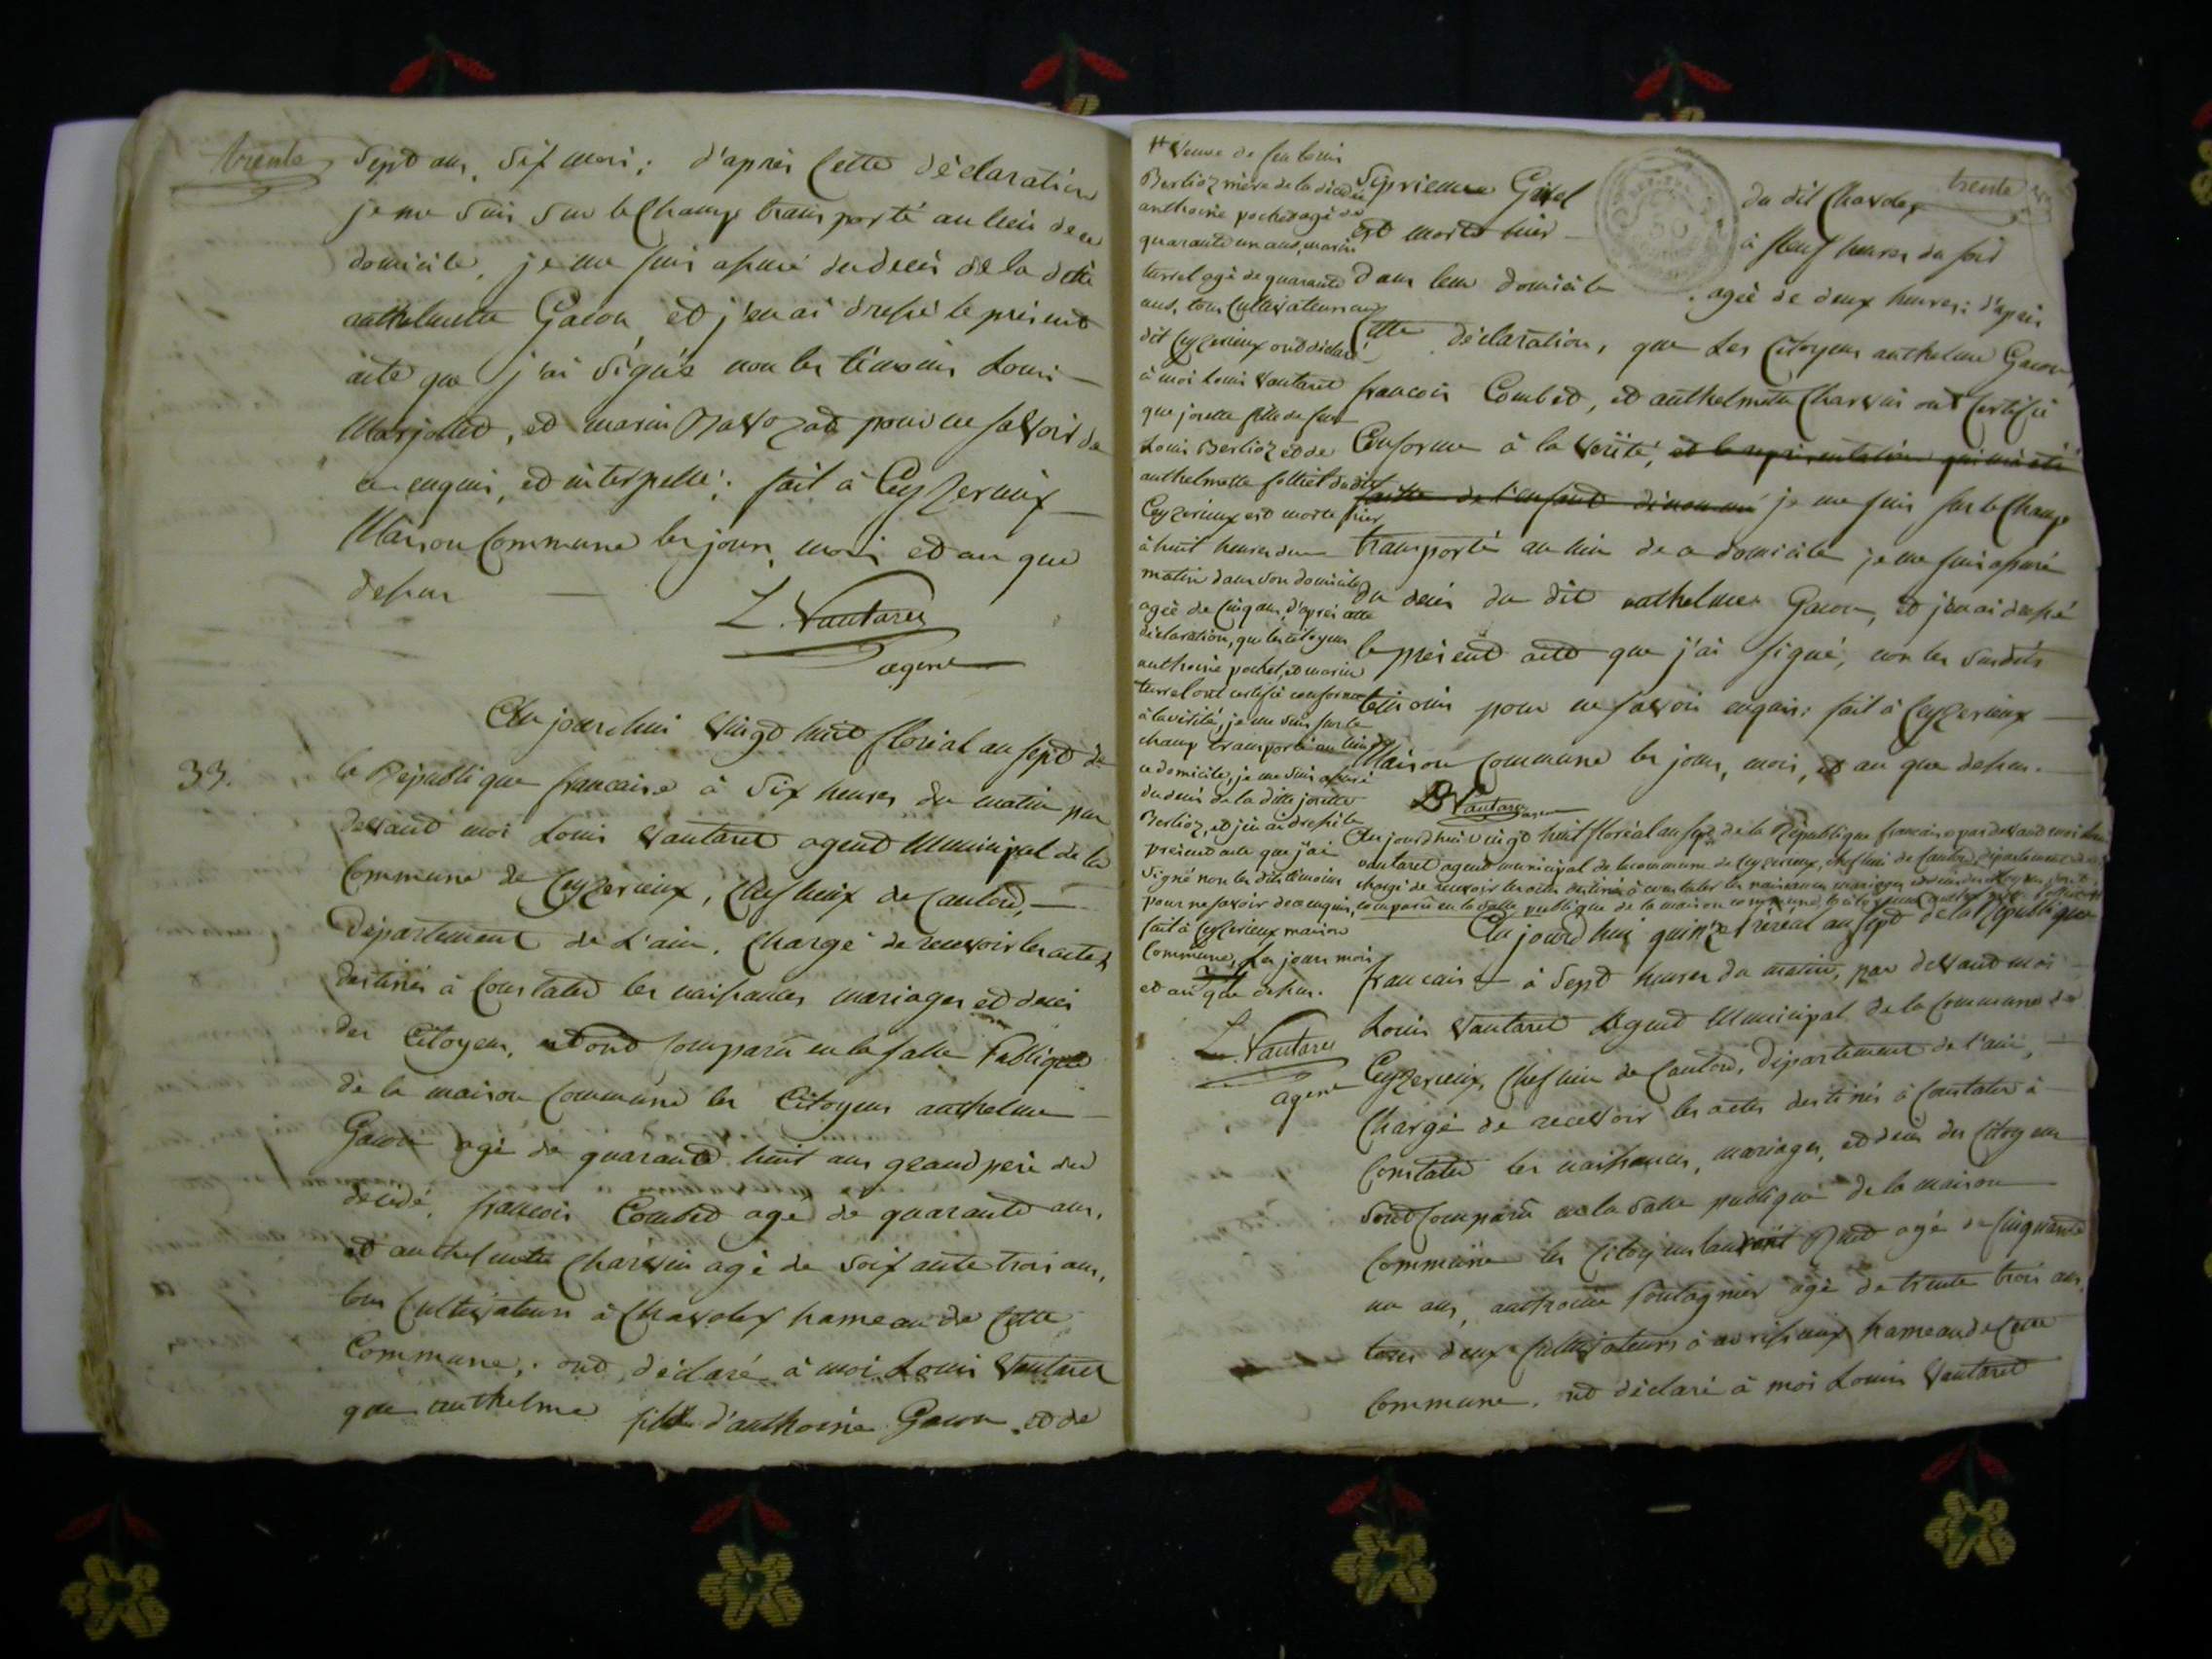 trente
Sept ans, six mois; d'après Cette déclaration
je me suis sur le Champ transporté au lieu de ce
domicile, je me suis assuré du decès de la ditte
anthelmette Gacon et j'en ai dressé le présent
acte que j'ai signés non les témoins Louis
Marjollet, et marin pour ne savoir de
ce enquis, et interpellé; fait à Ceyzerieux
Maison Commune les jours, mois et an que
dessus
L. Vautaret
agent
33.
Au jourd'hui vingt huit floréal an sept de
la République francaise à Six heures du matin par
devant moi Louis Vautaret agent Municipal de la
Commune de Ceyzerieux, Chef lieux de Canton,
Département de L'ain. Chargé de recevoir les actes
destinés à Constater les naissances mariages et decès
des Citoyens, ont Comparu en la salle Publique
de la maison Commune les Citoyens anthelme
Gacon agé de quarante huit ans grand père du
décédé, francois Combet agé de quarante ans,
et anthelmette Charvin agé de soixante trois ans,
tous Cultivateurs à Chavoley hameau de Cette
Commune; ont déclaré à moi Louis Vautaret
que anthelme fils d'anthoine Gacon et de
trente
Siprienne du dit Chavoley
est morte hier à neuf heures du soir
dans leur domicile agée de deux heures; d'après
Cette déclaration, que Les Citoyens anthelme Gacon,
francois Combet, et anthelmette Charvin ont Certifié
Conforme à la vérité, et la représentation qui m'a été
faitte de l'enfant dénommé je me suis sur le Champ
transporté au lieu de ce domicile je me suis assuré
du decès du dit anthelme Gacon, et j'en ai dressé
le présent acte que j'ai signé, non les susdits
témoins pour ne savoir enquis; fait à Ceyzerieux
Maison Commune les jours, mois, et an que dessus.
L Vautaret agent
Au jourd'hui vingt huit floréal an sept de la République francaise par devant moi Louis
vautaret agent municipal de la commune de Ceyzerieux, chef lieu de Canton, département de
chargé de recevoir les actes destinés à constater les naissances mariages et decès des citoyens
comparu en la salle publique de la maison commune, la citoyenne anthelmette
veuve de feu Louis
Berlioz mère de la décédée
anthoine pochet agé de
quarante un ans, marin
turrel agé de quarante
ans, tous Cultivateurs au
dit Ceyzerieux ont déclaré
à moi Louis Vautaret
que josette fille de feu
Louis Berlioz et de
anthelmette du dit
Ceyzerieux est morte hier
à huit heures du
matin dans son domicile
agée de Cinq ans, d'après cette
déclaration, que les citoyens
anthoine pochet, et marin
turrel ont certifié conforme
à la vérité, je me suis sur le
champ transporté au lieu de
ce domicile, je me suis assuré
du decès de la ditte josette
Berlioz, et j'en ai dressé le
présent acte que j'ai
Signé non les dits témoins
pour ne savoir de ce enquis,
fait à Ceyzerieux maison
Commune, Les jours mois
et an que dessus.
L. Vautaret
agent
Au jourd'hui quinze préréal an sept de la République
francaise à Sept heures du matin, par devant moi
Louis Vautaret Agent Municipal de la Commune de
Ceyzerieux, Chef lieu de Canton, Département de l'ain,
Chargé de recevoir les actes destinés à Constater à
Constater les naissances, mariages, et decès des Citoyens
sont Comparu en la Salle publique de la maison
Commune les Citoyens laurent agé de Cinquante
un ans, anthoine agé de trente trois ans,
tous deux Cultivateurs à hameau de Cette
Commune, ont déclaré à moi Louis Vautaret